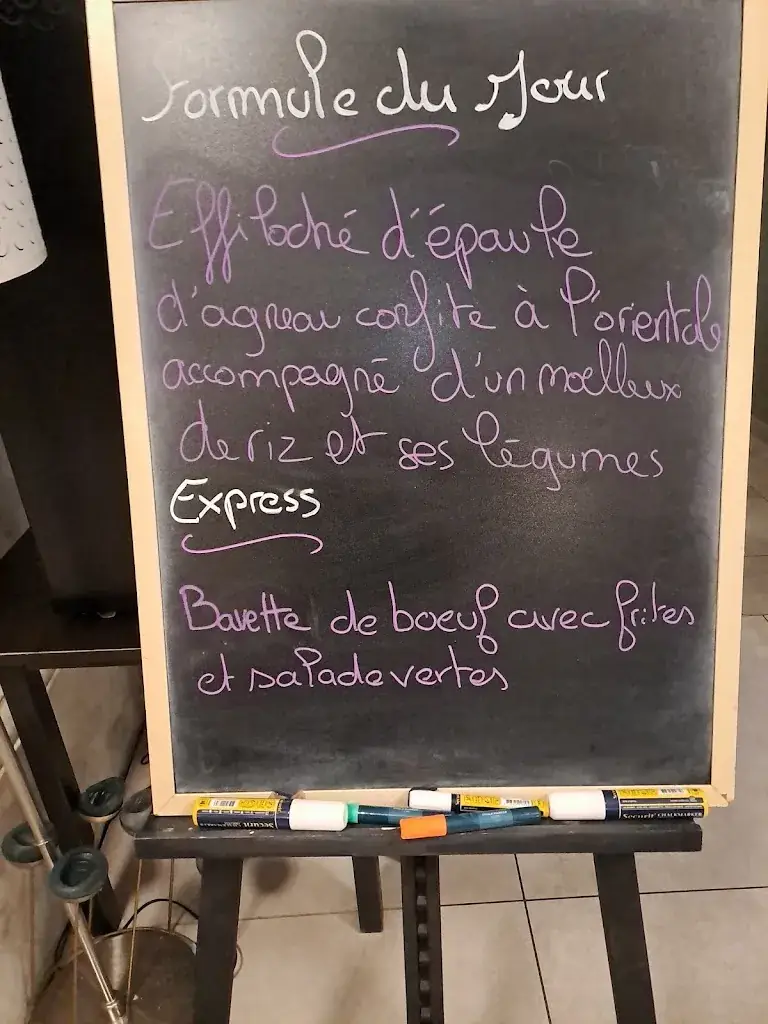 Formule du Jour
Effiloché d'épaule
d'agneau confite à l'orientale
accompagné d'un moelleux
de riz et ses légumes
Express
Bavette de boeuf avec frites
et salade vertes
Securit CHALKMARKER